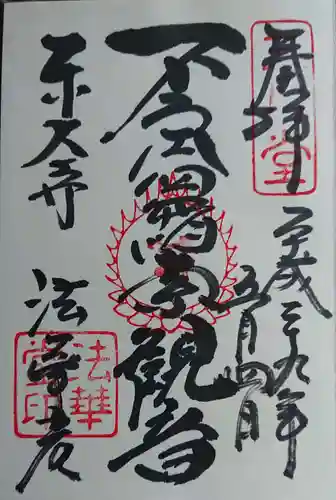 奉拝
堂
平成二九年
五月四日
不空羂索観音
東大寺
法華堂
法華
堂印